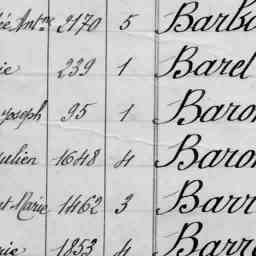 ée Ant.ne 2170 5 Barbo
ie 239 1 Barel
Joseph 95 1 Baron
ulien 1648 4 Baro
et Marie 1462 3 Barr
rie 1853 4 Barre